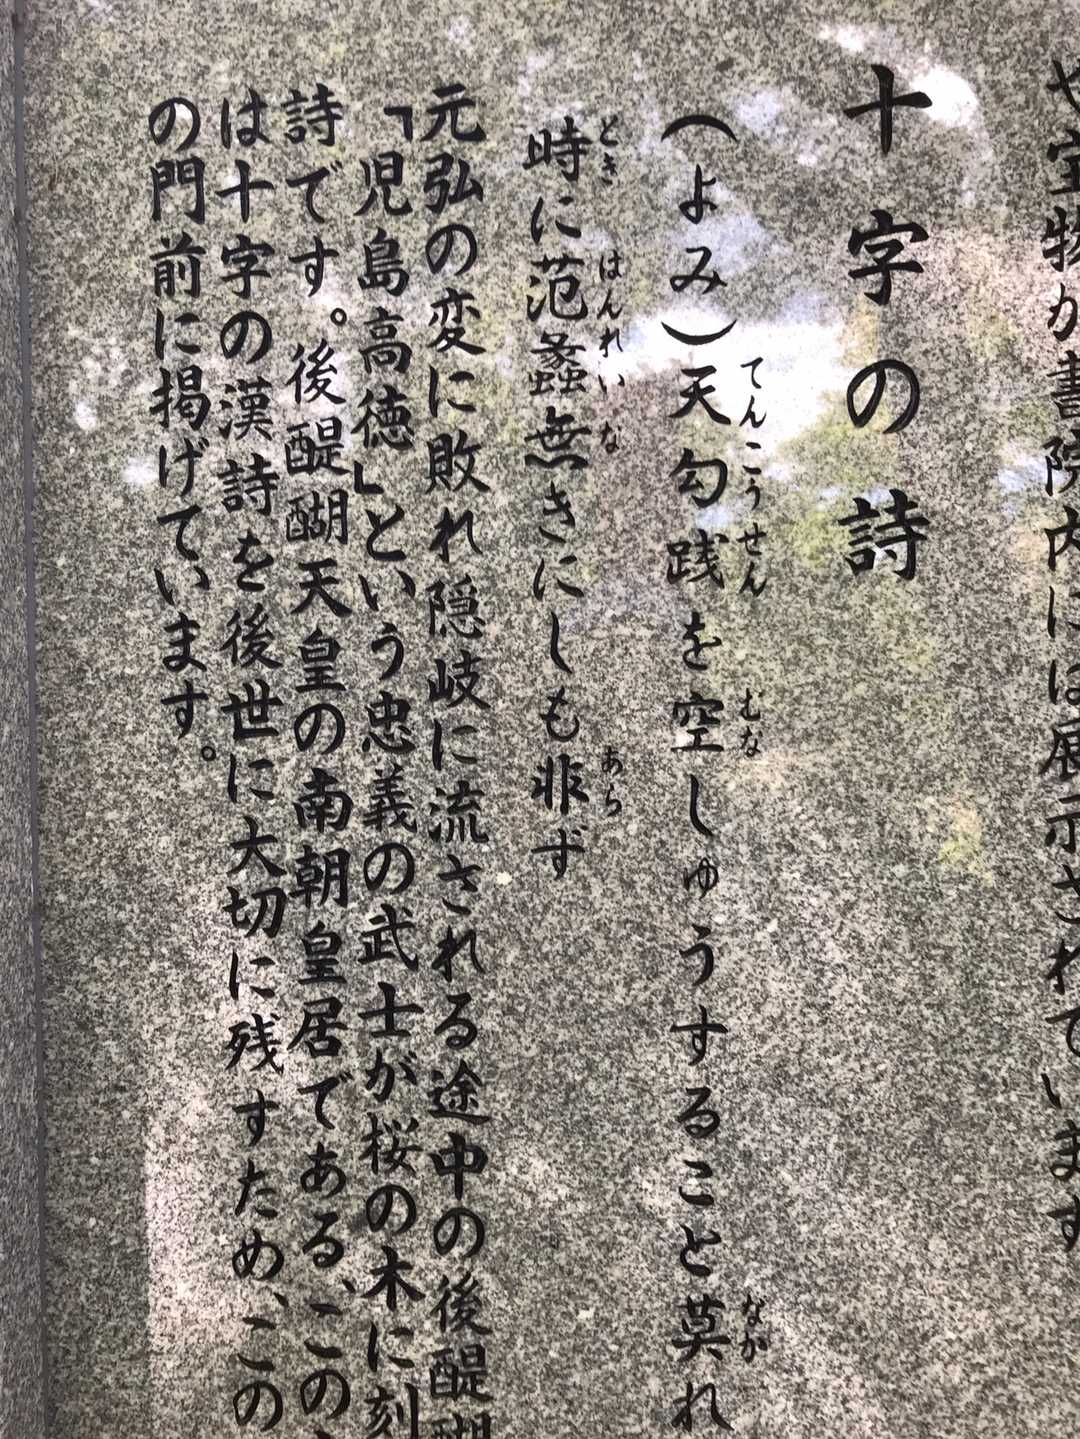 や宝物が書院内には展示されています
十字の詩
(よみ)天勾践を空しゅうすること莫れ
てんこうせん むな なか
時に范蠡無きにしも非ず
とき はんれいな あら
元弘の変に敗れ隠岐に流される途中の後醍醐
「児島高徳」という忠義の武士が桜の木に刻
詩です。後醍醐天皇の南朝皇居である、この
は十字の漢詩を後世に大切に残すため、この
の門前に掲げています。